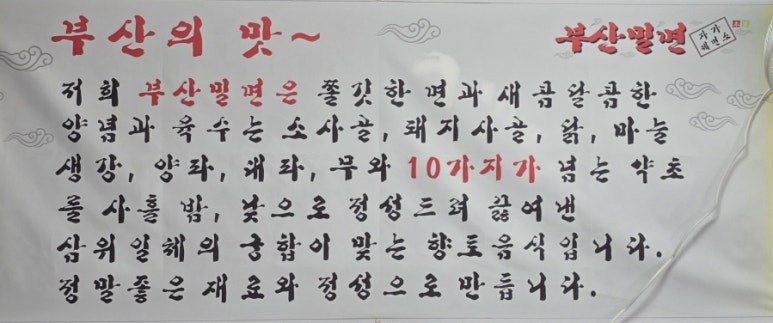 부산의 맛~
부산밀면
자가
제면소
저희 부산밀면은 쫄깃한 면과 새콤달콤한
양념과 육수는 소사골, 돼지사골, 닭, 마늘
생강, 양파, 대파, 무와 10가지가 넘는 약초
를 사흘 밤, 낮으로 정성드려 끓여낸
삼위일체의 궁합이 맞는 향토음식입니다.
정말좋은 재료와 정성으로 만듭니다.